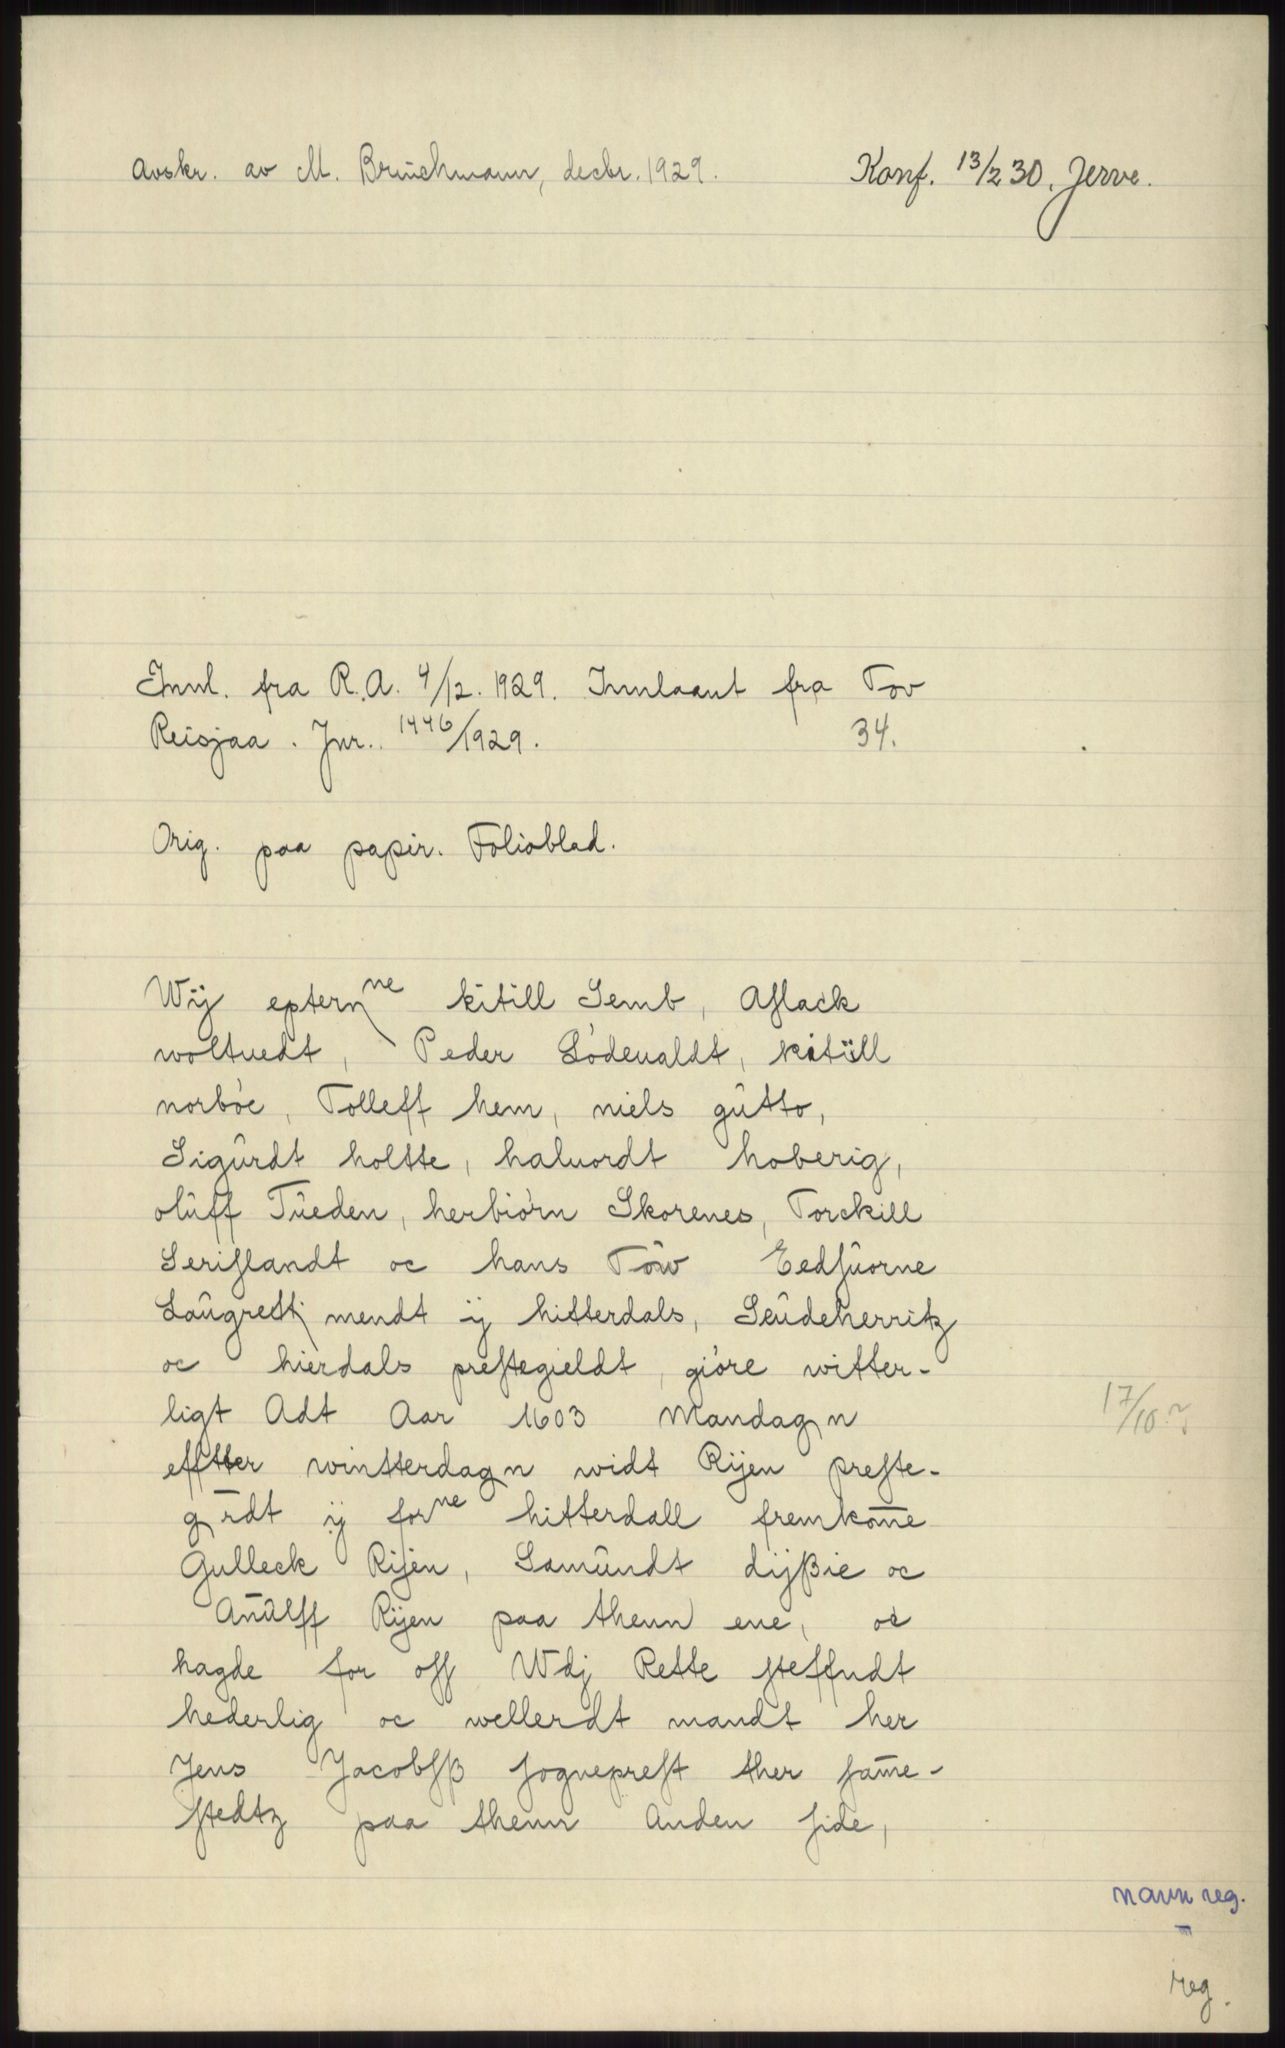 Avskr. av M. Brinchmann, decbr. 1929. Konf. 13/2 30. Jerve.
Innl. fra R.A. 4/12. 1929. Innlaant fra Tov
Reisjaa. Jnr. 1446/1929. 34.
Orig. paa papir. Folioblad.
Wij eptern^ne kitill Semb, Aslack
woltuedt, Peder Södeualdt, kitüll
norböe, Tolleff hem, niels gûtto,
Sigûrdt holtte, haluordt hoberig,
olûff Tûeden, herbiörn Skorenes, Torckill
Serislandt oc hans Töw Eedsûorne
Laûgrettj mendt ij hitterdals, Seûdeherritz
oc hierdals prestegieldt, giöre witter-
ligt Adt Aar 1603 Mandagn 17/10.?
effter wintterdagn widt Rijen preste-
grdt ij for^ne hitterdall fremkom̄e
Gulleck Rijen, Samûndt dijßie oc
Anûlff Rijen paa thenn ene, oc
hagde for oss Wdj Rette steffndt
hederlig oc wellerdt mandt her
Jens Jacobsß sogneprest ther sam̄e-
stedtz paa thenn Anden side,
navn reg.
reg.